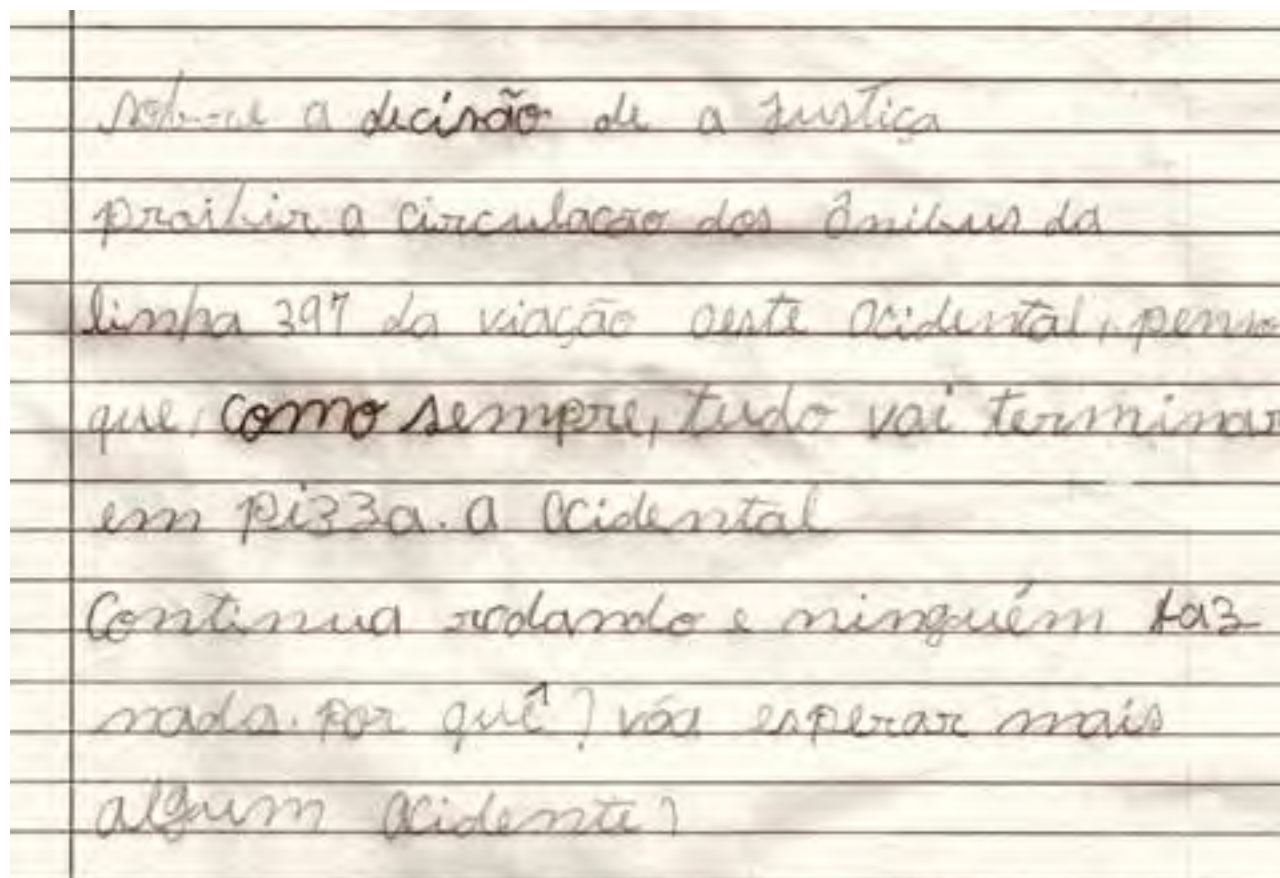 sobre a decisão de a Justiça
proibir a circulação dos ônibus da
linha 397 da viação oeste Ocidental, penso
que, como sempre, tudo vai terminar
em pizza. a Ocidental
Continua rodando e ninguém faz
nada. por quê? vão esperar mais
algum acidente?